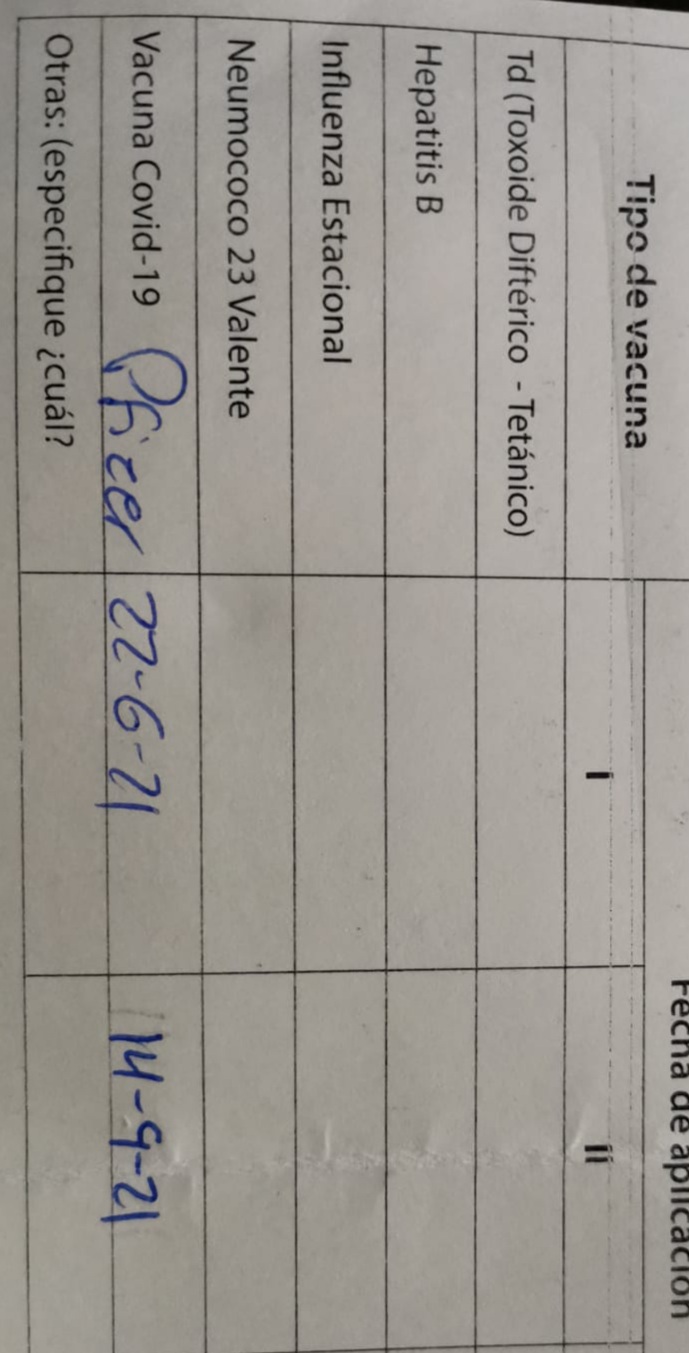 Fecha de aplicación
Tipo de vacuna I II
Td (Toxoide Diftérico - Tetánico)
Hepatitis B
Influenza Estacional
Neumococo 23 Valente
Vacuna Covid-19 Pfizer 22-6-21 14-9-21
Otras: (especifique ¿cuál?